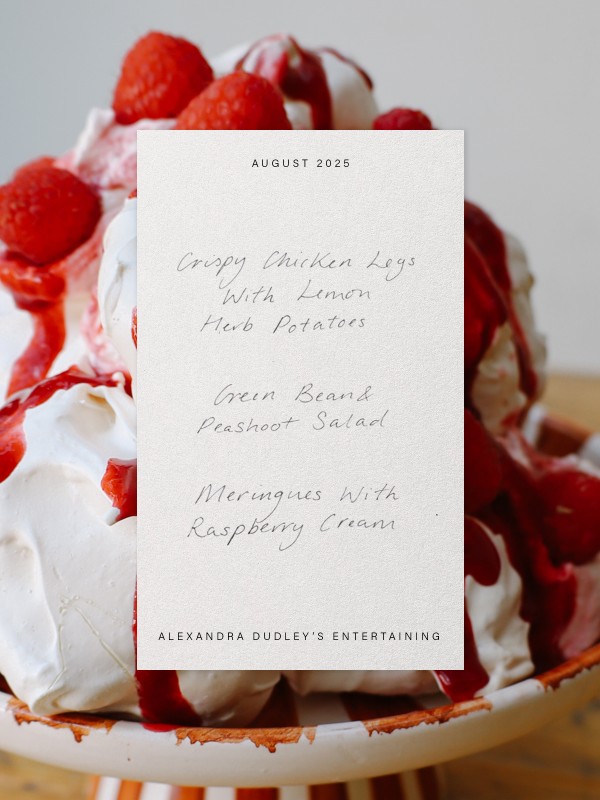 AUGUST 2025
Crispy Chicken Legs
With Lemon
Herb Potatoes
Green Bean &
Peashoot Salad
Meringues With
Raspberry Cream
ALEXANDRA DUDLEY'S ENTERTAINING